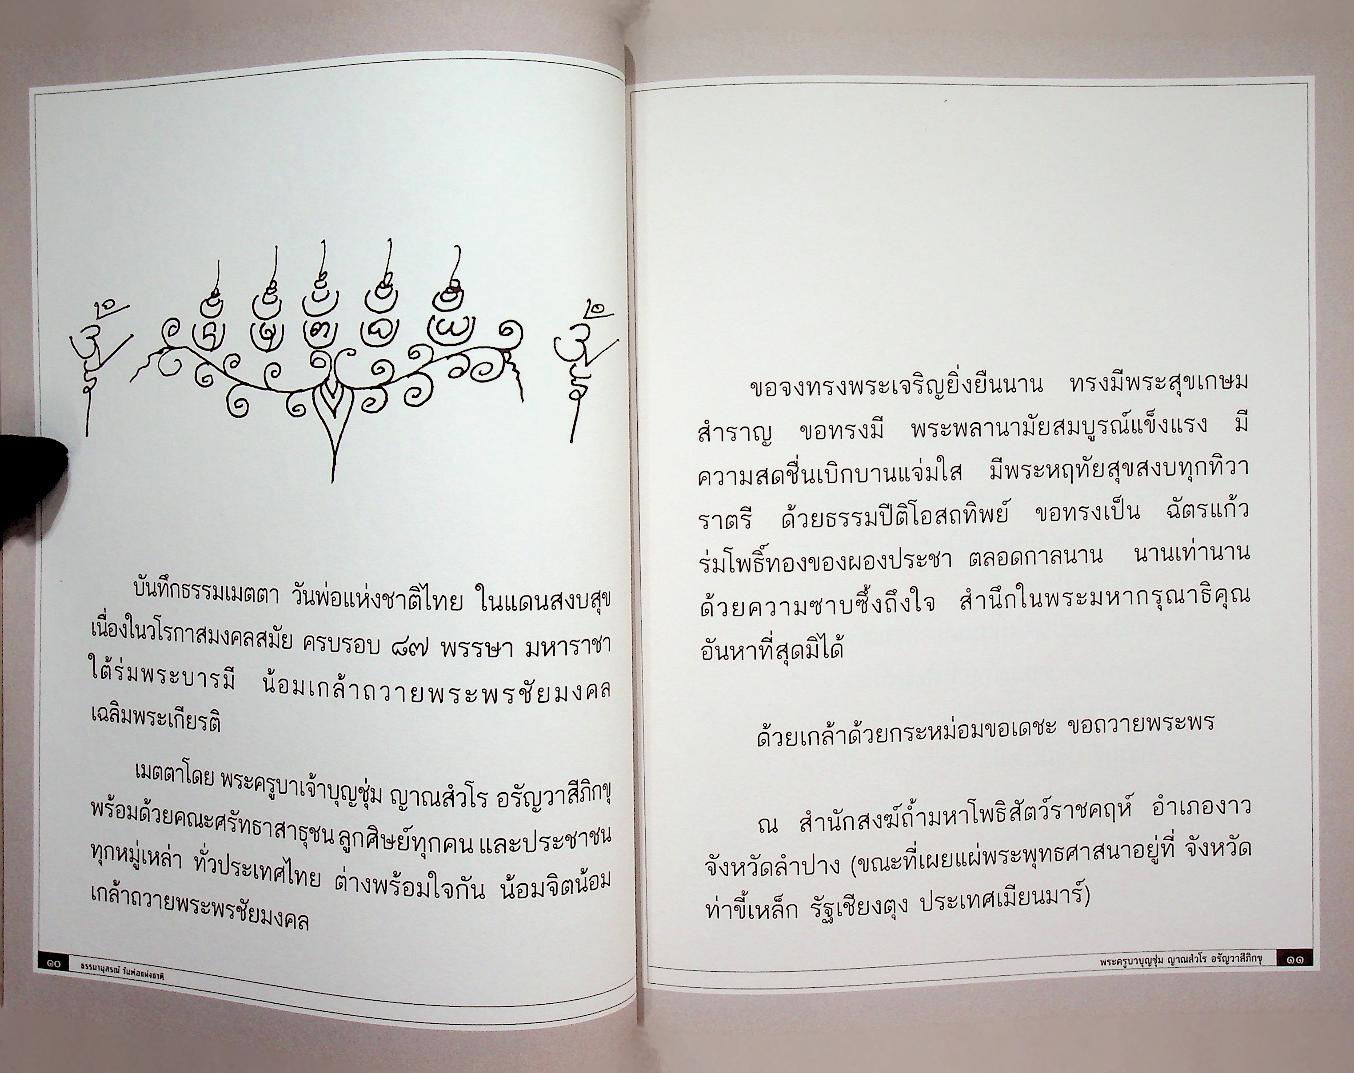 บันทึกธรรมเมตตา วันพ่อแห่งชาติไทย ในแดนสงบสุข
เนื่องในวโรกาสมงคลสมัย ครบรอบ ๘๗ พรรษา มหาราชา
ใต้ร่มพระบารมี น้อมเกล้าถวายพระพรชัยมงคล
เฉลิมพระเกียรติ
เมตตาโดย พระครูบาเจ้าบุญชุ่ม ญาณสํวโร อรัญวาสีภิกขุ
พร้อมด้วยคณะศรัทธาสาธุชน ลูกศิษย์ทุกคน และประชาชน
ทุกหมู่เหล่า ทั่วประเทศไทย ต่างพร้อมใจกัน น้อมจิตน้อม
เกล้าถวายพระพรชัยมงคล
๑๐ ธรรมานุสรณ์ วันพ่อแห่งชาติ
ขอจงทรงพระเจริญยิ่งยืนนาน ทรงมีพระสุขเกษม
สำราญ ขอทรงมี พระพลานามัยสมบูรณ์แข็งแรง มี
ความสดชื่นเบิกบานแจ่มใส มีพระหฤทัยสุขสงบทุกทิวา
ราตรี ด้วยธรรมปีติโอสถทิพย์ ขอทรงเป็น ฉัตรแก้ว
ร่มโพธิ์ทองของผองประชา ตลอดกาลนาน นานเท่านาน
ด้วยความซาบซึ้งถึงใจ สำนึกในพระมหากรุณาธิคุณ
อันหาที่สุดมิได้
ด้วยเกล้าด้วยกระหม่อมขอเดชะ ขอถวายพระพร
ณ สำนักสงฆ์ถ้ำมหาโพธิสัตว์ราชคฤห์ อำเภองาว
จังหวัดลำปาง (ขณะที่เผยแผ่พระพุทธศาสนาอยู่ที่ จังหวัด
ท่าขี้เหล็ก รัฐเชียงตุง ประเทศเมียนมาร์)
พระครูบาบุญชุ่ม ญาณสํวโร อรัญวาสีภิกขุ ๑๑